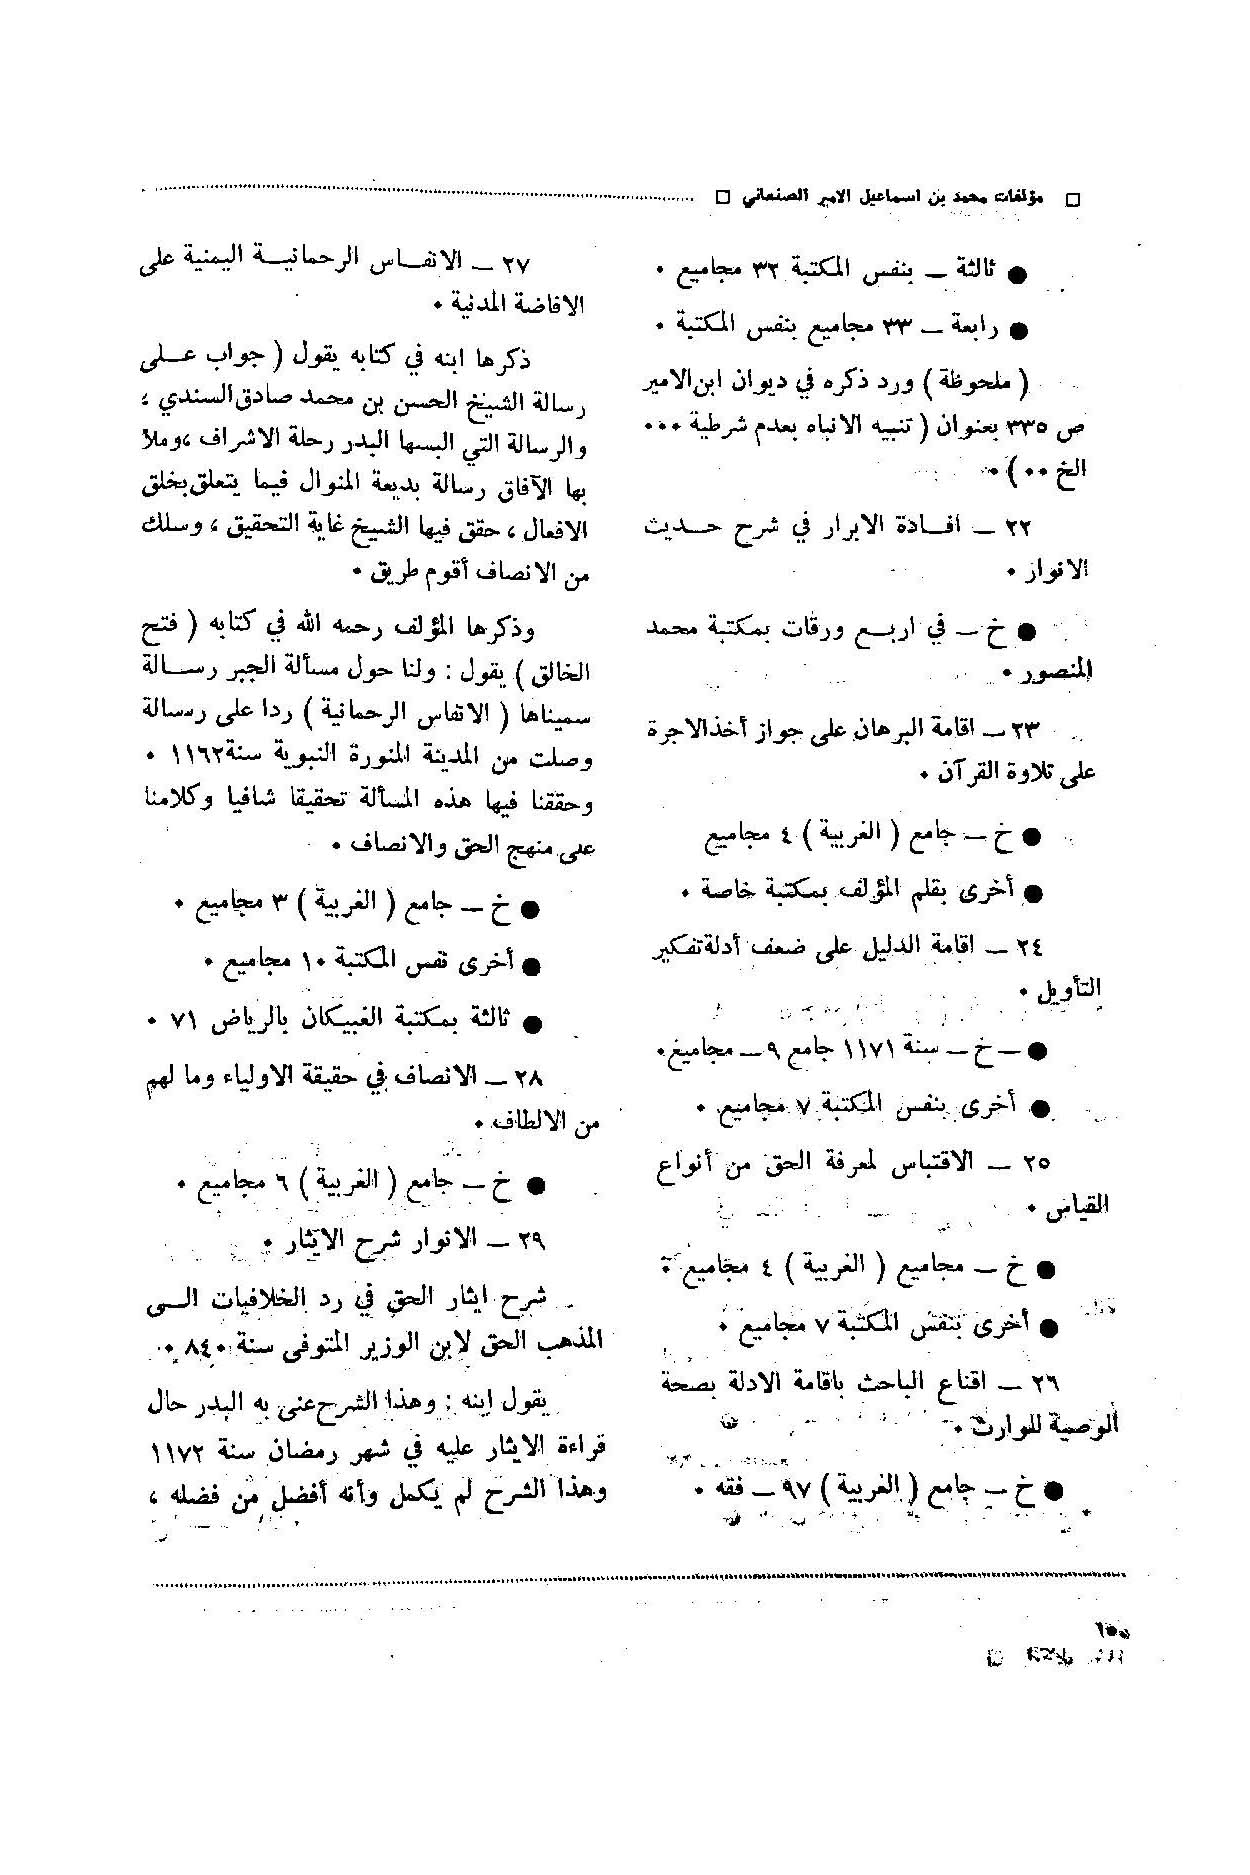 □ مؤلفات محمد بن اسماعيل الامير الصنعاني □
● ثالثة — بنفس المكتبة ٣٢ مجاميع ٠
● رابعة — ٣٣ مجاميع بنفس المكتبة ٠
( ملحوظة ) ورد ذكره في ديوان ابن الامير
ص ٣٣٥ بعنوان ( تنبيه الانباه بعدم شرطية ٠٠٠
الخ ٠٠ ) ٠
٢٢ — افـادة الابرار في شرح حـديث
الانوار ٠
● خ — في اربـع ورقات بمكتبة محمد
المنصور ٠
٢٣ — اقامة البرهان على جواز أخذ الاجرة
على تلاوة القرآن ٠
● خ — جامع ( الغربية ) ٤ مجاميع
● أخرى بقلم المؤلف بمكتبة خاصة ٠
٢٤ — اقامة الدليل على ضعف أدلة تفكير
التأويل ٠
● — خ — سنة ١١٧١ جامع ٩ — مجاميع ٠
● أخرى بنفس المكتبة ٧ مجاميع ٠
٢٥ — الاقتباس لمعرفة الحق من أنواع
القياس ٠
● خ — مجاميع ( الغربية ) ٤ مجاميع ٠
● أخرى بنفس المكتبة ٧ مجاميع ٠
٢٦ — اقناع الباحث باقامة الادلة بصحة
الوصية للوارث ٠
● خ — جامع ( الغربية ) ٩٧ — فقه ٠
٢٧ — الانفـاس الرحمانيـة اليمنية على
الافاضة المدنية ٠
ذكرها ابنه في كتابه يقول ( جواب عـلى
رسالة الشيخ الحسن بن محمد صادق السندي ،
والرسالة التي البسها البدر رحلة الاشراف ، وملأ
بها الآفاق رسالة بديعة المنوال فيما يتعلق بخلق
الافعال ، حقق فيها الشيخ غاية التحقيق ، وسلك
من الانصاف أقوم طريق ٠
وذكرها المؤلف رحمه الله في كتابه ( فتح
الخالق ) يقول : ولنا حول مسألة الجبر رسـالة
سميناها ( الانفاس الرحمانية ) ردا على رسالة
وصلت من المدينة المنورة النبوية سنة ١١٦٢ ٠
وحققنا فيها هذه المسألة تحقيقا شافيا وكلامنا
على منهج الحق والانصاف ٠
● خ — جامع ( الغربية ) ٣ مجاميع ٠
● أخرى نفس المكتبة ١٠ مجاميع ٠
● ثالثة بمكتبة العبيكان بالرياض ٧١ ٠
٢٨ — الانصاف في حقيقة الاولياء وما لهم
من الالطاف ٠
● خ — جامع ( الغربية ) ٦ مجاميع ٠
٢٩ — الانوار شرح الايثار ٠
شرح ايثار الحق في رد الخلافيات الـى
المذهب الحق لابن الوزير المتوفى سنة ٨٤٠ ٠
يقول ابنه : وهذا الشرح عنى به البدر حال
قراءة الايثار عليه في شهر رمضان سنة ١١٧٢
وهذا الشرح لم يكمل وأنه أفضل من فضله ،